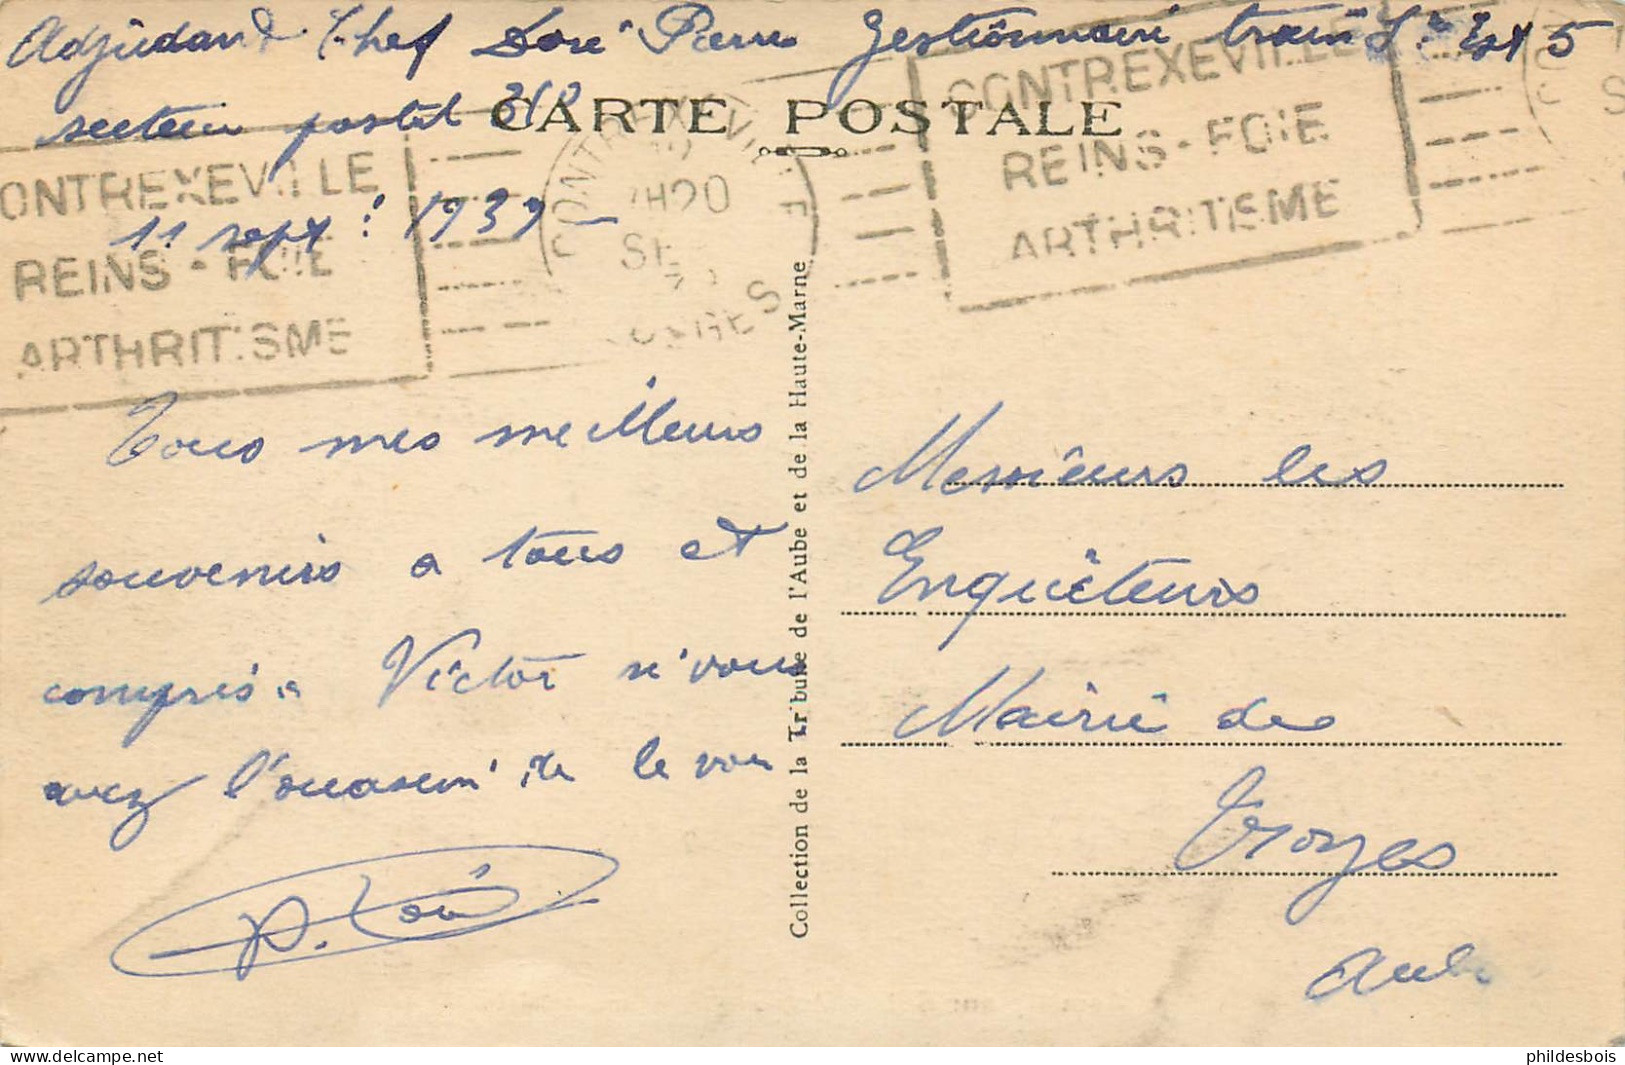 Adjudant Chef Doré Pierre Gestionnaire train Sre Est 5
secteur postal 310
CARTE POSTALE
11 sept : 1939 –
CONTREXEVILLE
7H20
SE
VOSGES
ONTREXEVILLE
REINS - FOIE
ARTHRITISME
CONTREXEVILLE
REINS - FOIE
ARTHRITISME
Tous mes meilleurs
souvenirs a tous et
compris a Victor si vous
avez l'occasion de le voir
P. Doré
Collection de la Tribune de l'Aube et de la Haute-Marne
Messieurs les
Enquêteurs
Mairie de
Troyes
Aube
phildesbois